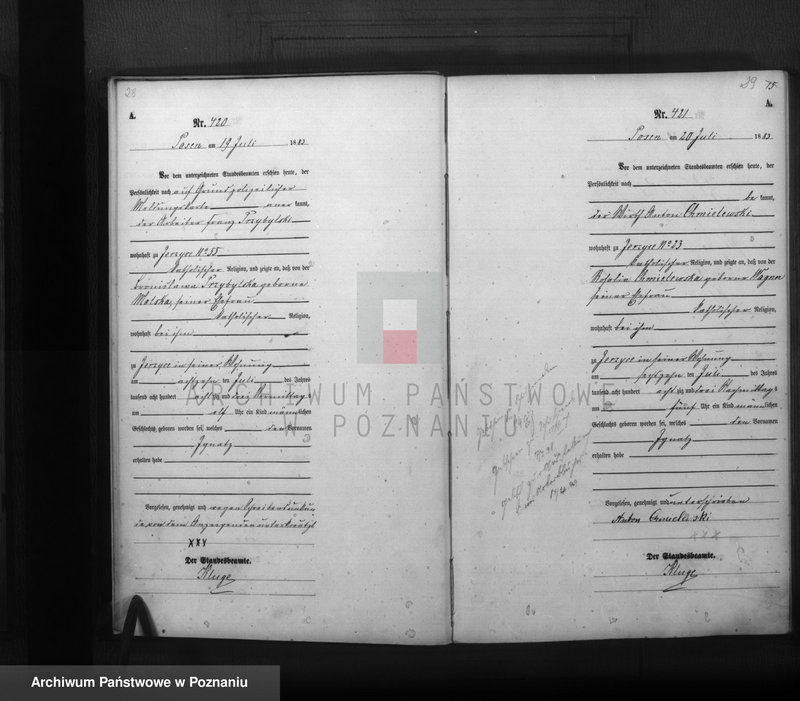 28
A.
Nr. 420
Posen am 19 Juli 1883
Vor dem unterzeichneten Standesbeamten erschien heute, der
Persönlichkeit nach auf Grund polizeilicher
Meldungskarte aner kannt,
der Arbeiter Franz Przybylski
wohnhaft zu Jerzyce No 55
katholischer Religion, und zeigte an, daß von der
Bronislawa Przybylska geborene
Malska, seiner Ehefrau
katholischer Religion,
wohnhaft bei ihm
zu Jerzyce in seiner Wohnung
am achtzehn ten Juli des Jahres
tausend acht hundert achtzig und drei Vormittags
um elf Uhr ein Kind männlichen
Geschlechts geboren worden sei, welches den Vornamen
Ignatz
erhalten habe
Vorgelesen, genehmigt und wegen Schreibensunkun
de von dem Anzeigenden unterkreuzt
XXX
Der Standesbeamte.
Kluge
29 75
A.
Nr. 421
Posen am 20 Juli 1883
Vor dem unterzeichneten Standesbeamten erschien heute, der
Persönlichkeit nach
be kannt,
der Wirth Anton Chmielewski
wohnhaft zu Jerzyce No 23
katholischer Religion, und zeigte an, daß von der
Rosalia Chmielewska geborene Wagner
seiner Ehefrau
katholischer Religion,
wohnhaft bei ihm
zu Jerzyce in seiner Wohnung
am sechszehn ten Juli des Jahres
tausend acht hundert achtzig und drei Nachmittags
um fünf Uhr ein Kind männlichen
Geschlechts geboren worden sei, welches den Vornamen
Ignatz
erhalten habe
Vorgelesen, genehmigt und unterschrieben
Anton Chmielewski
Der Standesbeamte.
Kluge
ARCHIWUM PAŃSTWOWE
W POZNANIU
Archiwum Państwowe w Poznaniu